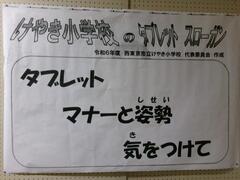 けやき小学校 の タブレット スローガン
令和6年度 西東京市立けやき小学校 代表委員会 作成
タブレット
マナーと姿勢
しせい
気をつけて
き